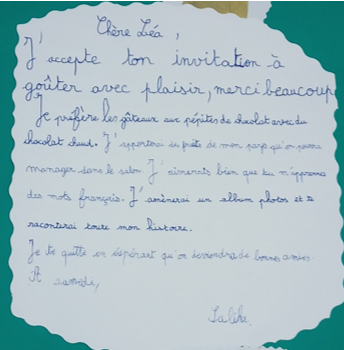 Chère Léa,
J'accepte ton invitation à
goûter avec plaisir, merci beaucoup
Je préfère les gâteaux aux pépites de chocolat avec du
chocolat chaud. J'apporterai du de mon pays qu'on pourra
manager dans le salon J'aimerais bien que tu m'apprennes
des mots français. J'amènerai un album photos et te
raconterai toute mon histoire.
Je te quitte en espérant qu'on deviendra de bonnes amies.
A samedi,